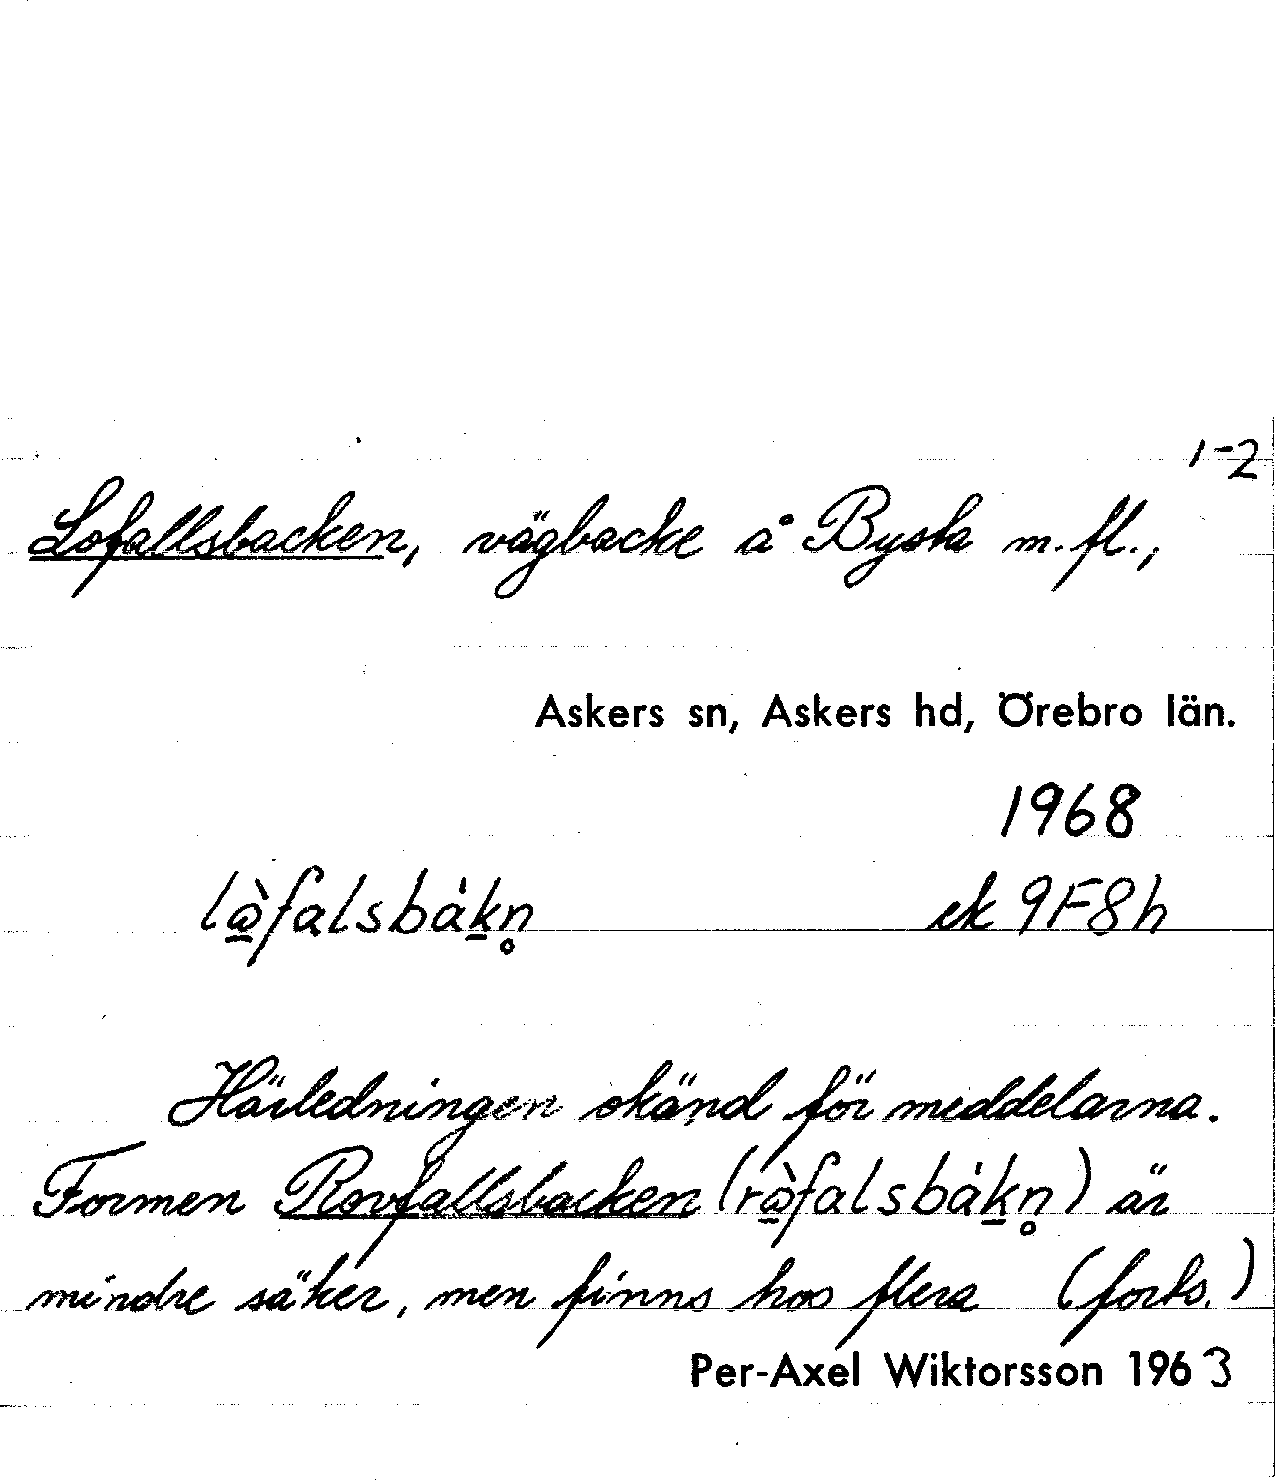 1-2
Lofallsbacken, vägbacke å Bysta m. fl.,
Askers sn, Askers hd, Örebro län.
1968
là̱falsbáḵn̥ ek 9F8h
Härledningen okänd för meddelarna.
Formen Rovfallsbacken (rà̱falsbáḵn̥) är
mindre säker, men finns hos flera (forts.)
Per-Axel Wiktorsson 1963